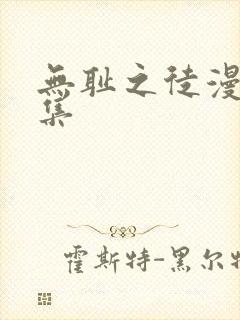 無耻之徒漫
集
霍斯特-黑尔特